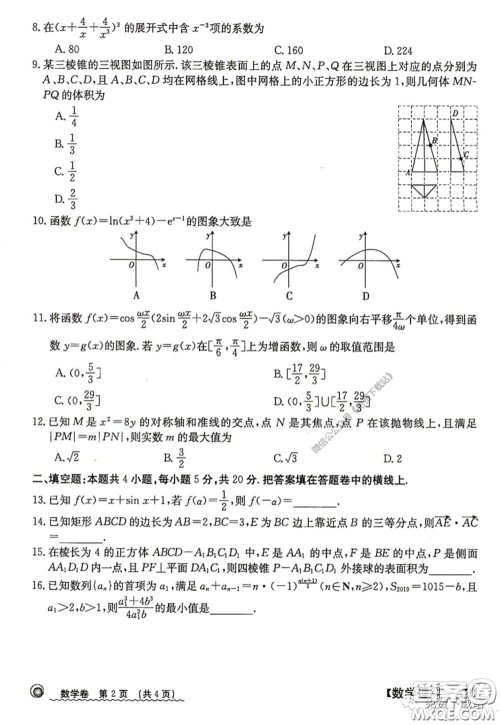 8. 在(x+4/x+4/x³)³ 的展开式中含 x⁻³项的系数为
A. 80 B. 120 C. 160 D. 224
9. 某三棱锥的三视图如图所示. 该三棱锥表面上的点 M、N、P、Q 在三视图上对应的点分别为
A、B、C、D, 且 A、B、C、D 均在网格线上, 图中网格上的小正方形的边长为 1, 则几何体 MN-
PQ 的体积为
A. 1/4
B. 1/3
C. 1/2
D. 2/3
A B C
10. 函数 f(x)=ln(x³+4)-eˣ⁻¹的图象大致是
y x y x y x y x
A B C D
11. 将函数 f(x)=cos ωx/2 (2sin ωx/2 +2√3cos ωx/2)-√3(ω>0)的图象向右平移 π/4ω 个单位, 得到函
数 y=g(x)的图象. 若 y=g(x)在[π/6, π/4]上为增函数, 则 ω 的取值范围是
A. (0, 5/3] B. [17/2, 29/3]
C. (0, 5/3]∪[17/2, 29/3] D. (0, 5/3]∪[17/2, 29/3]
12. 已知 M 是 x²=8y 的对称轴和准线的交点, 点 N 是其焦点, 点 P 在该抛物线上, 且满足
|PM|=m|PN|, 则实数 m 的最大值为
A. √2 B. C. √3 D. 2
二、填空题: 本题共 4 小题, 每小题 5 分, 共 20 分. 把答案填在答题卷中的横线上.
13. 已知 f(x)=x+sin x+1, 若 f(α)=1/2, 则 f(-α)=
14. 已知矩形 ABCD 的边长为 AB=2, BC=3, E 为 BC 边上靠近点 B 的三等分点, 则AE·AC=
15. 在棱长为 4 的正方体 ABCD-A₁B₁C₁D₁ 中, E 是 AA₁ 的中点, F 是 BE 的中点, P 是侧面
AA₁D₁D 内一点, 且 PF⊥平面 ABC₁D₁. 则四棱锥 P-A₁B₁C₁D₁ 外接球的表面积为
16. 已知数列{aₙ}的首项为 a₁, 满足 aₙ+aₙ₋₁=n·(-1)^(n(n+1)/2)(n∈N, n≥2), S₂₀₁₉=1015-b, 且
a₁>2, b>1, 则 (a₁³+4b³)/(4a₁²b) 的最小值是
数学卷 第 2 页 (共 4 页)
【数学